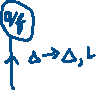 a/f
Δ → Δ, L